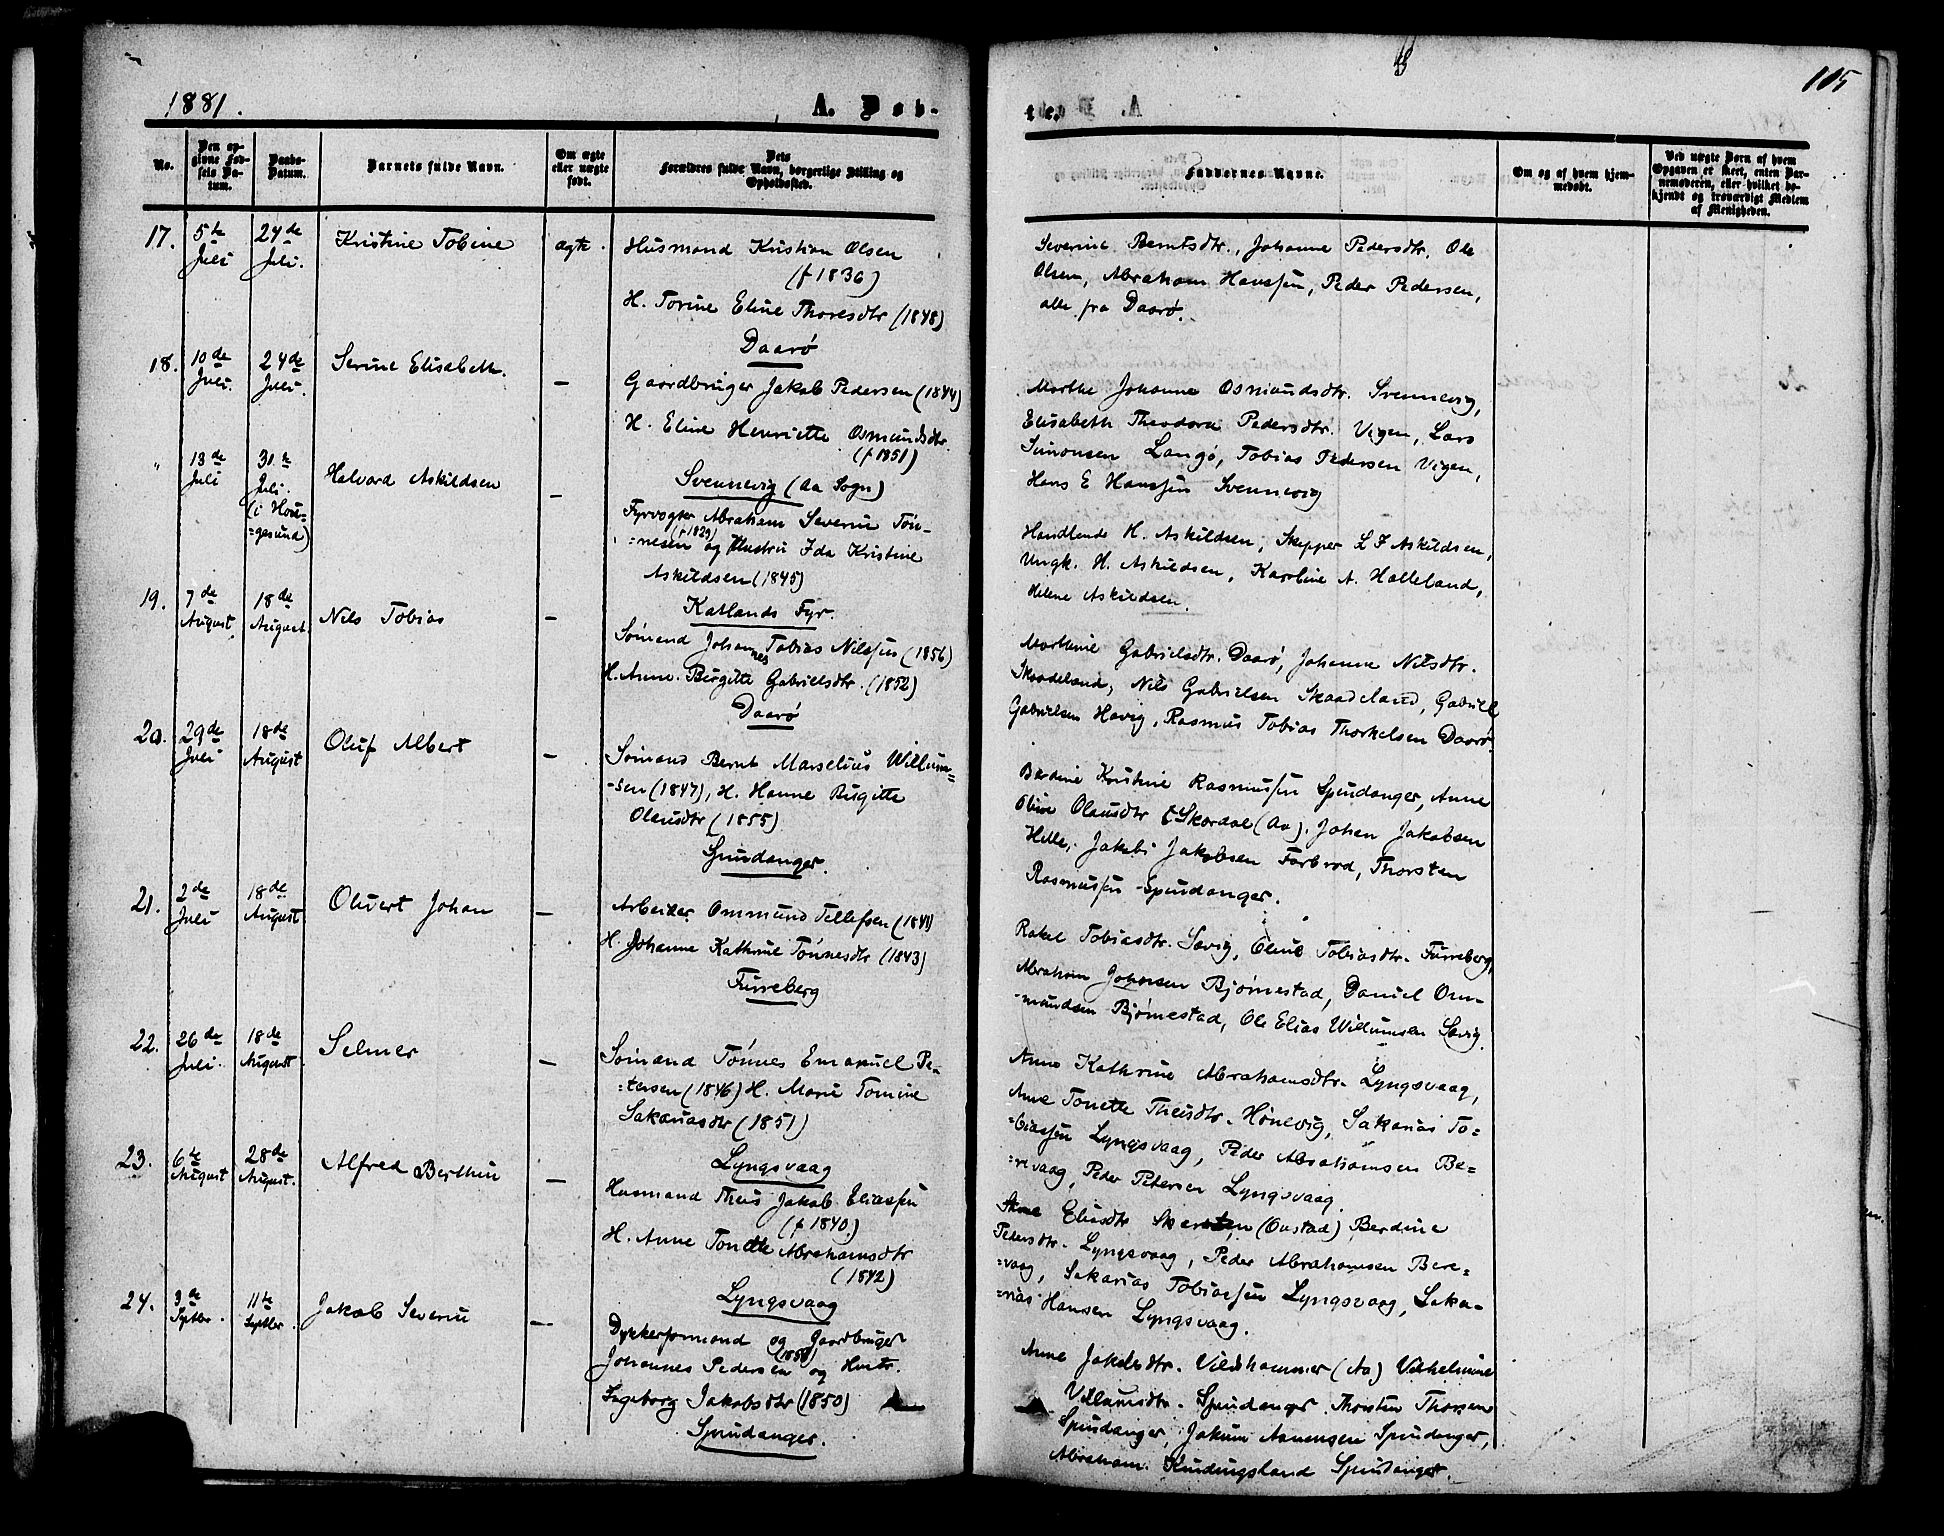 1881.
A. Døb-
No.
Den op-
givne Fød-
sels Da-
tum.
Daabs-
Datum.
Barnets fulde Navn.
Om ægte
eller uægte
født.
Dets
Forældres fulde Navn, borgerlige Stilling og
Opholdssted.
17.
5te
Juli
24de
Juli.
Kristine Tobine
ægte.
Husmand Kristian Olsen
(f 1836)
H. Torine Eline Thoresdtr (1848)
Daarø
18.
10de
Juli.
24de
Juli.
Serine Elisabeth.
—
Gaardbruger Jakob Pedersen (1844)
H. Eline Henriette Osmundsdtr.
(f 1851)
Svennevig (Aa Sogn)
"
13de
Juli
31te
Juli.
(i Hou-
=gesund)
Halvard Askildsen
—
Fyrvogter Abraham Severin Tøn-
=nesen (1829) og Hustru Ida Kristine
Askildsen (1845)
Katlands Fyr.
19.
7de
August.
18de
August.
Nils Tobias
—
Sømand Johannes Tobias Nilssen (1856)
H. Anne Birgitte Gabrielsdtr. (1852)
Daarø
20.
29de
Juli
18de
August
Oluf Albert
—
Sømand Bernt Marselius Willum=
-sen (1847), H. Hanne Birgitte
Olausdtr (1855)
Spindanger.
21.
2de
Juli
18de
August
Olivert Johan
—
Arbeider Ommund Tellefsen (1841)
H. Johanne Kathrine Tønnesdtr (1843)
Furreberg
22.
26de
Juli.
18de
August
Selmer
—
Sømand Tønnes Emanuel Pe-
=tersen (1846) H. Marie Tomine
Sakariasdtr (1851)
Lyngsvaag
23.
6te
August
28de
August.
Alfred Berthin
—
Husmand Theis Jakob Eliassen
(f 1840)
H. Anne Tonette Abrahamsdtr
(1842)
Lyngsvaag
24.
3de
Septbr.
11te
Septbr.
Jakob Severin
—
Dykkerformand og Gaardbruger
Johannes Pedersen og Hustr.
Ingeborg Jakobsdtr (1850)
Spindanger.
105
te.
Faddernes Navne.
Om og af hvem hjem-
medøbt.
Ved uægte Børn af hvem
Opgaven er skeet, enten Bar-
nemoderen, eller hvilket be-
kjendt og troværdigt Medlem
af Menigheden.
Severine Berntsdtr., Johanne Pedersdtr. Ole
Olsen, Abraham Hanssen, Peder Pedersen,
alle fra Daarø.
Marthe Johanne Osmundsdtr. Svennevig,
Elisabeth Theodora Pedersdtr. Vigen, Lars
Simonsen Langø, Tobias Pedersen Vigen,
Hans E Hanssen Svennevig
Handlende H. Askildsen, Skipper L F Askildsen,
Ungk. H. Askildsen, Karoline A. Halleland,
Helene Askildsen.
Marthine Gabrielsdtr. Daarø, Johanne Nilsdtr.
Skaadeland, Nils Gabrielsen Skaadeland, Gabriel
Gabrielsen Havig, Rasmus Tobias Thorkelsen Daarø.
Berdine Kristine Rasmussen Spindanger, Anne
Oline Olausdtr Skordal (Aa). Johan Jakobsen
Helle, Jakob Jakobsen Farbrod, Thorsten
Rasmussen Spindanger.
Rakel Tobiasdtr. Søvig, Oline Tobiasdtr. Furreberg,
Abraham Johnsen Bjørnestad, Daniel Om-
-mundsen Bjørnestad, Ole Elias Willumsen Søvig.
Anne Kathrine Abrahamsdtr. Lyngsvaag,
Anne Tonette Theisdtr. Hønevig, Sakarias To-
=biassen Lyngsvaag, Peder Abrahamsen Be=
=revaag, Peder Petersen Lyngsvaag.
Eliasdtr (Oustad) Berdine
Pedersdtr. Lyngsvaag, Peder Abrahamsen Bere=
=vaag, Sakarias Tobiassen Lyngsvaag, Saka-
=rias Hansen Lyngsvaag.
Anne Jakobsdtr. Vildshammer (Aa) Vilhelmine
Villumsdtr. Spindanger. Thorsten Thorsen
Spindanger, Jakim Aanensen Spindanger,
Abraham Kindingsland Spindanger.